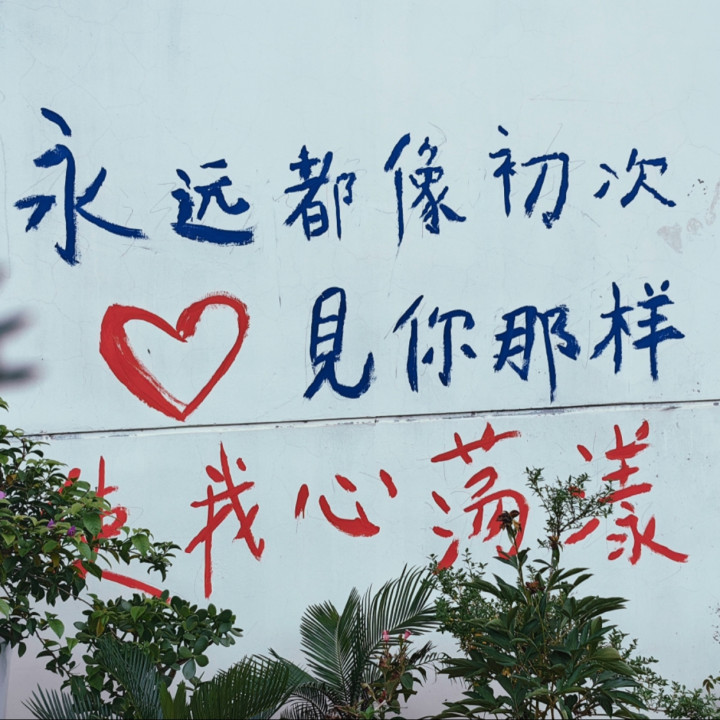 永远都像初次
見你那样
使我心荡漾